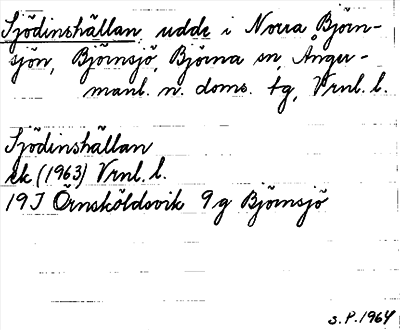 Sjödinshällan, udde i Norra Björn-
sjön, Björnsjö, Björna sn, Ånger-
manl. n. doms. tg, Vrnl. l.
Sjödinshällan
ek (1963) Vrnl. l.
19 J Örnsköldsvik 9 g Björnsjö
S.P. 1964